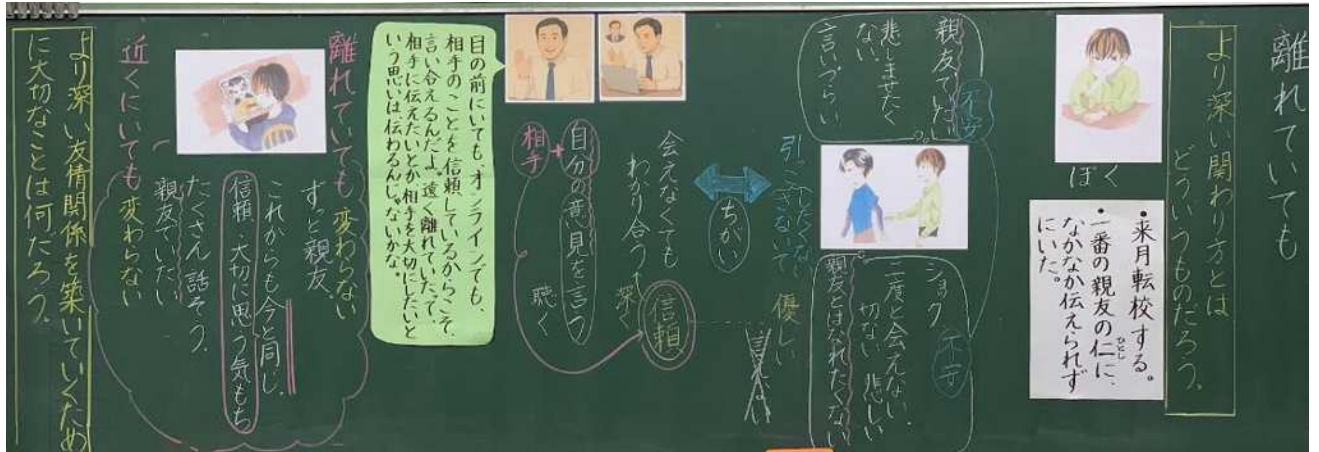 離れていても
より深い関わり方とは
どういうものだろう。
ぼく
・来月転校する。
・一番の親友の仁に、
ひとし
なかなか伝えられず
にいた。
不安
親友でいたい
悲しませたく
ない。
言いづらい
ショック
不安
二度と会えない。
切ない 悲しい
親友とはなれたくない
引っこしたくない
優しい
言えない
ちがい
会えなくても
わかり合う
深く
信頼
自分の意見を言う
+
相手
聴く
目の前にいても、オンラインでも、
相手のことを信頼しているからこそ、
言い合えるんだよ。遠く離れていたって、
相手に伝えたいとか相手を大切にしたいと
いう思いは、伝わるんじゃないかな。
離れていても変わらない
ずっと親友。
これからも今と同じ。
信頼・大切に思う気もち
たくさん話そう。
親友でいたい
近くにいても変わらない
より深い友情関係を築いていくため
に大切なことは何だろう。